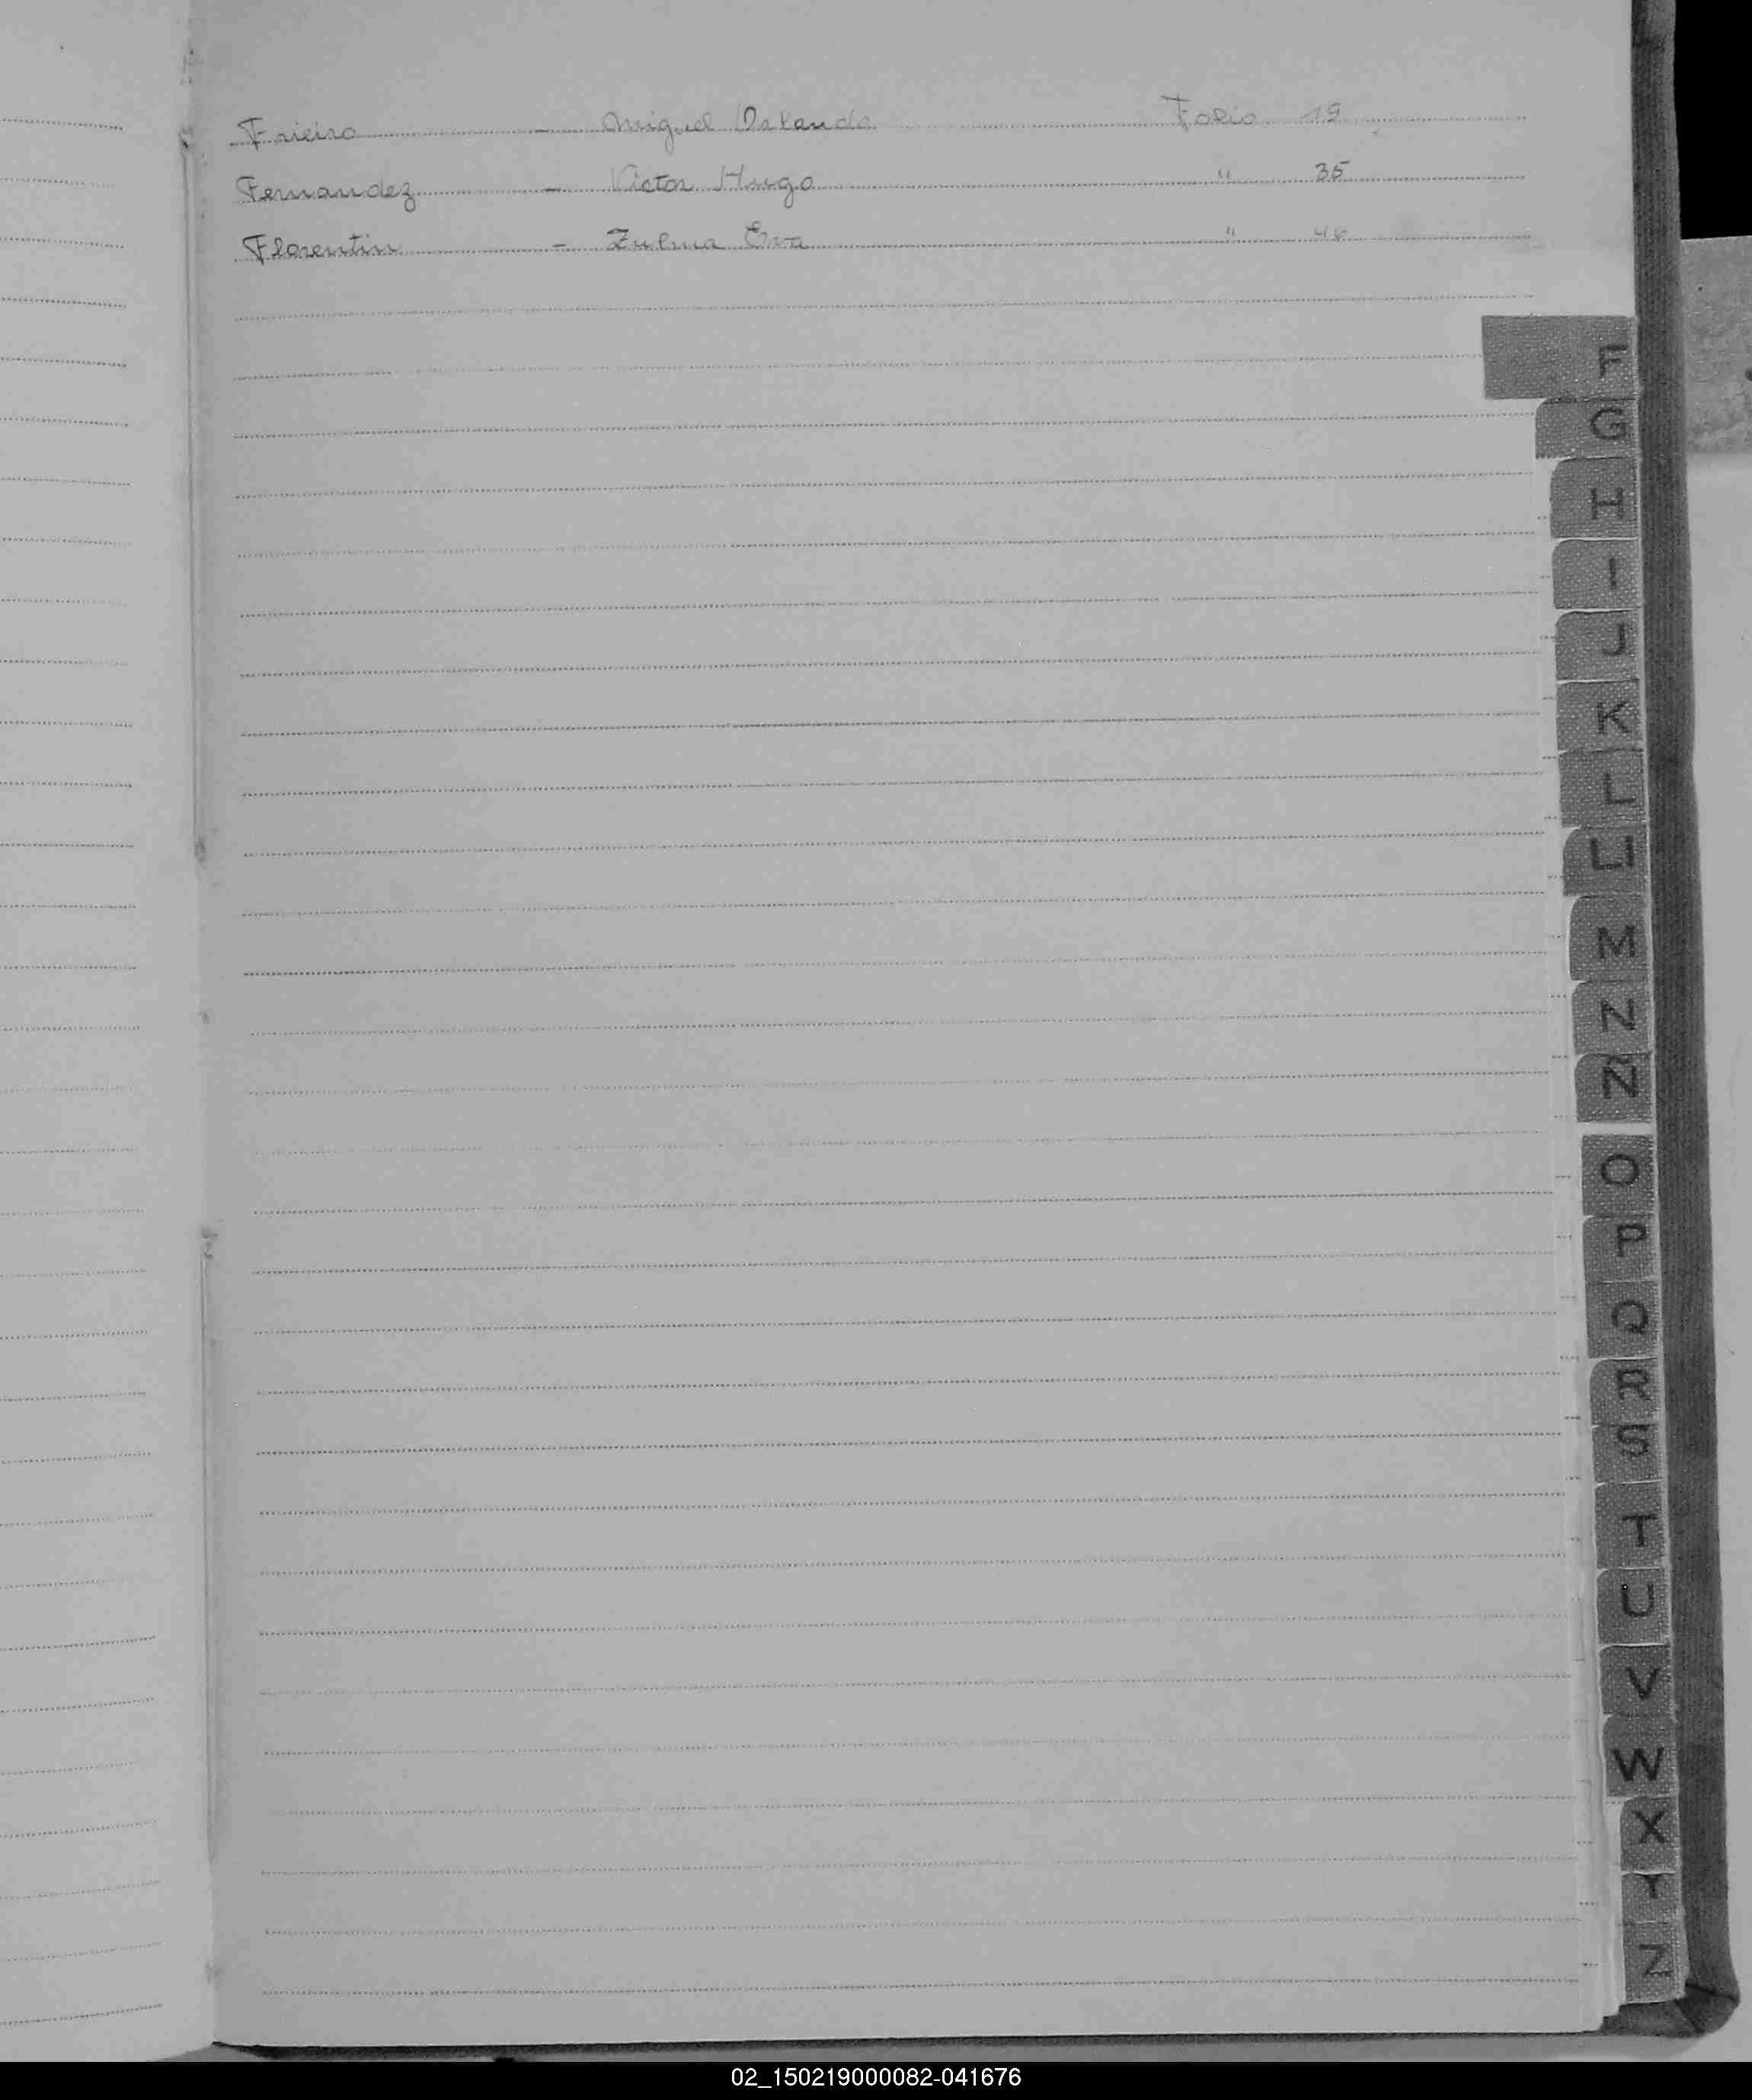 Frieiro - Miguel Orlando Folio 19
Fernandez - Victor Hugo " 35
Florentin - Zulma Eva " 46
F
G
H
I
J
K
L
LL
M
N
Ñ
O
P
Q
R
S
T
U
V
W
X
Y
Z
02_150219000082-041676